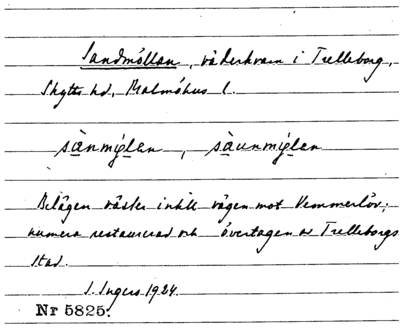 Sandmöllan, väderkvarn i Trelleborg,
Skytts hd, Malmöhus l.
sànmýlan, sàunmýlan
Belägen väster intill vägen mot Vemmerlöv;
numera restaurerad och övertagen av Trelleborgs
stad.
I. Ingers 1924.
Nr 5825.